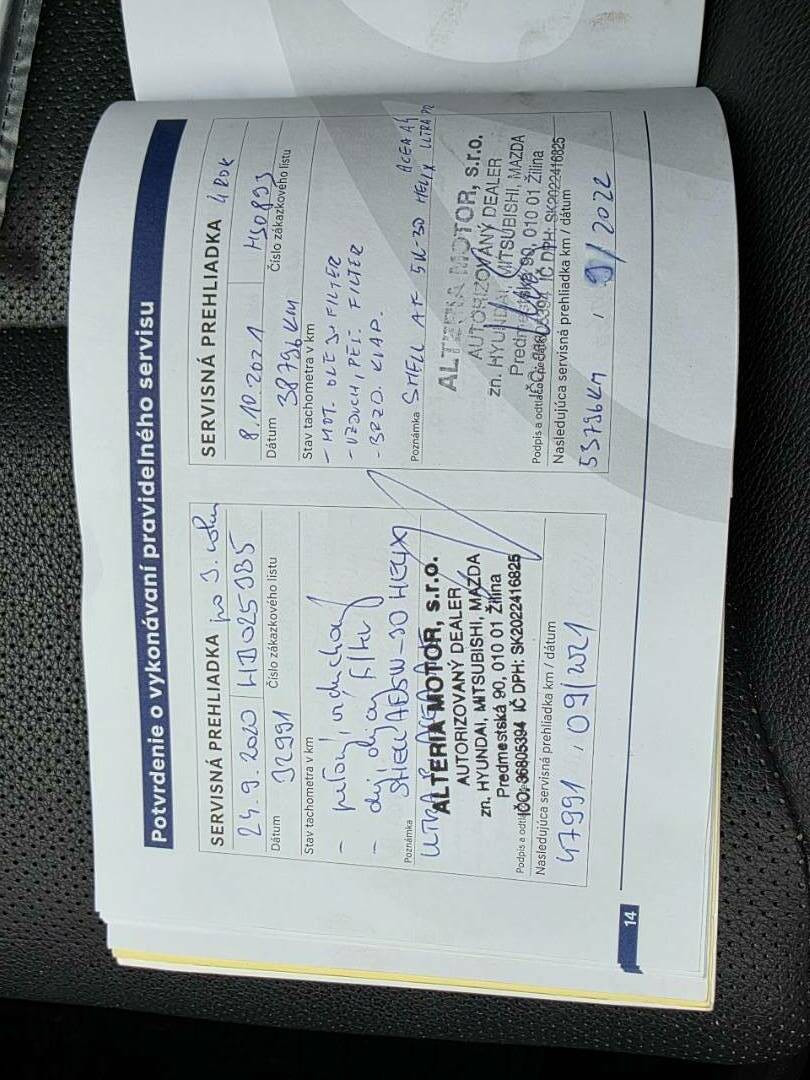 Potvrdenie o vykonávaní pravidelného servisu
SERVISNÁ PREHLIADKA po 3. roku
24.9.2020
Dátum
Číslo zákazkového listu
32991
Stav tachometra v km
- peľový, vzduchový
- olej, olejový filter
SHELL AF 5W-30 HELIX
Poznámka
ULTRA
ALTERIA MOTOR, s.r.o.
AUTORIZOVANÝ DEALER
zn. HYUNDAI, MITSUBISHI, MAZDA
Predmestská 90, 010 01 Žilina
IČO: 36805394 IČ DPH: SK2022416825
Podpis a
Nasledujúca servisná prehliadka km / dátum
47991 , 09/2021
SERVISNÁ PREHLIADKA 4 ROK
8.10.2021
Dátum
Číslo zákazkového listu
38796 KM
Stav tachometra v km
- MOT. OLEJ + FILTER
- VZDUCH, PEĽ. FILTER
- BRZD. KVAP.
ACEA A5
Poznámka SHELL AF 5W-30 HELIX ULTRA
ALTERIA MOTOR, s.r.o.
AUTORIZOVANÝ DEALER
zn. HYUNDAI, MITSUBISHI, MAZDA
Predmestská 90, 010 01 Žilina
IČ DPH: SK2022416825
Podpis a
Nasledujúca servisná prehliadka km / dátum
53796 KM , 9/2022
14